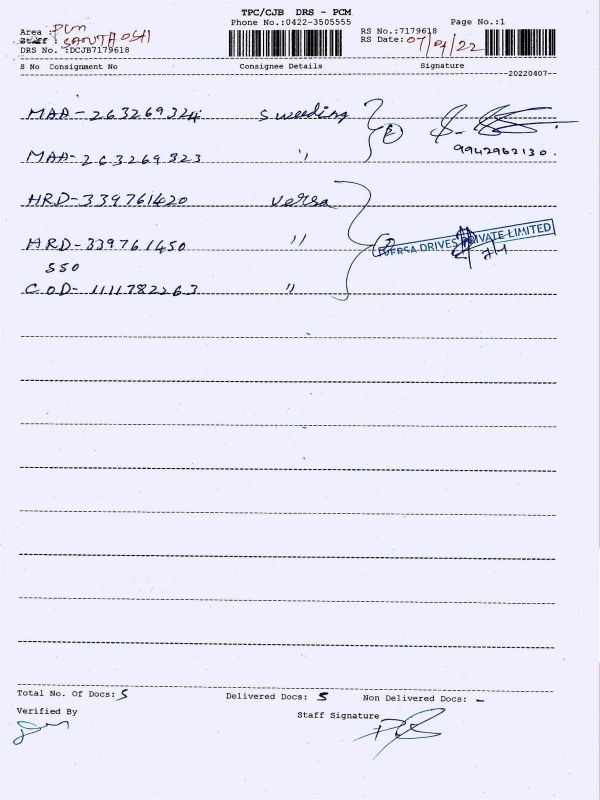 TPC/CJB DRS - PCM
Phone No.:0422-3505555 Page No.:1
Area : PCM
Staff : SANTHOSH
DRS No. :DCJB7179618
RS No.:7179618
RS Date: 07/04/22
S No Consignment No Consignee Details Signature
20220407--
MAA-263269324 Sweeding
2
9942962130.
MAA-263269323 "
HRD-339761420 versa
HRD-339761450 "
VERSA DRIVES PRIVATE LIMITED
550
COD-1111782263 "
Total No. Of Docs: 5 Delivered Docs: 5 Non Delivered Docs: -
Verified By
Staff Signature